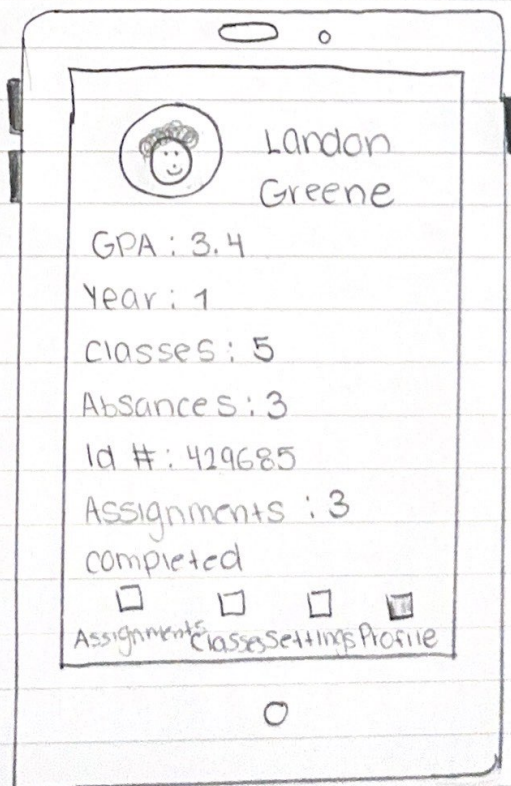 Landon
Greene
GPA : 3.4
Year : 1
Classes : 5
Absances : 3
Id # : 429685
Assignments : 3
completed
Assignments Classes Settings Profile